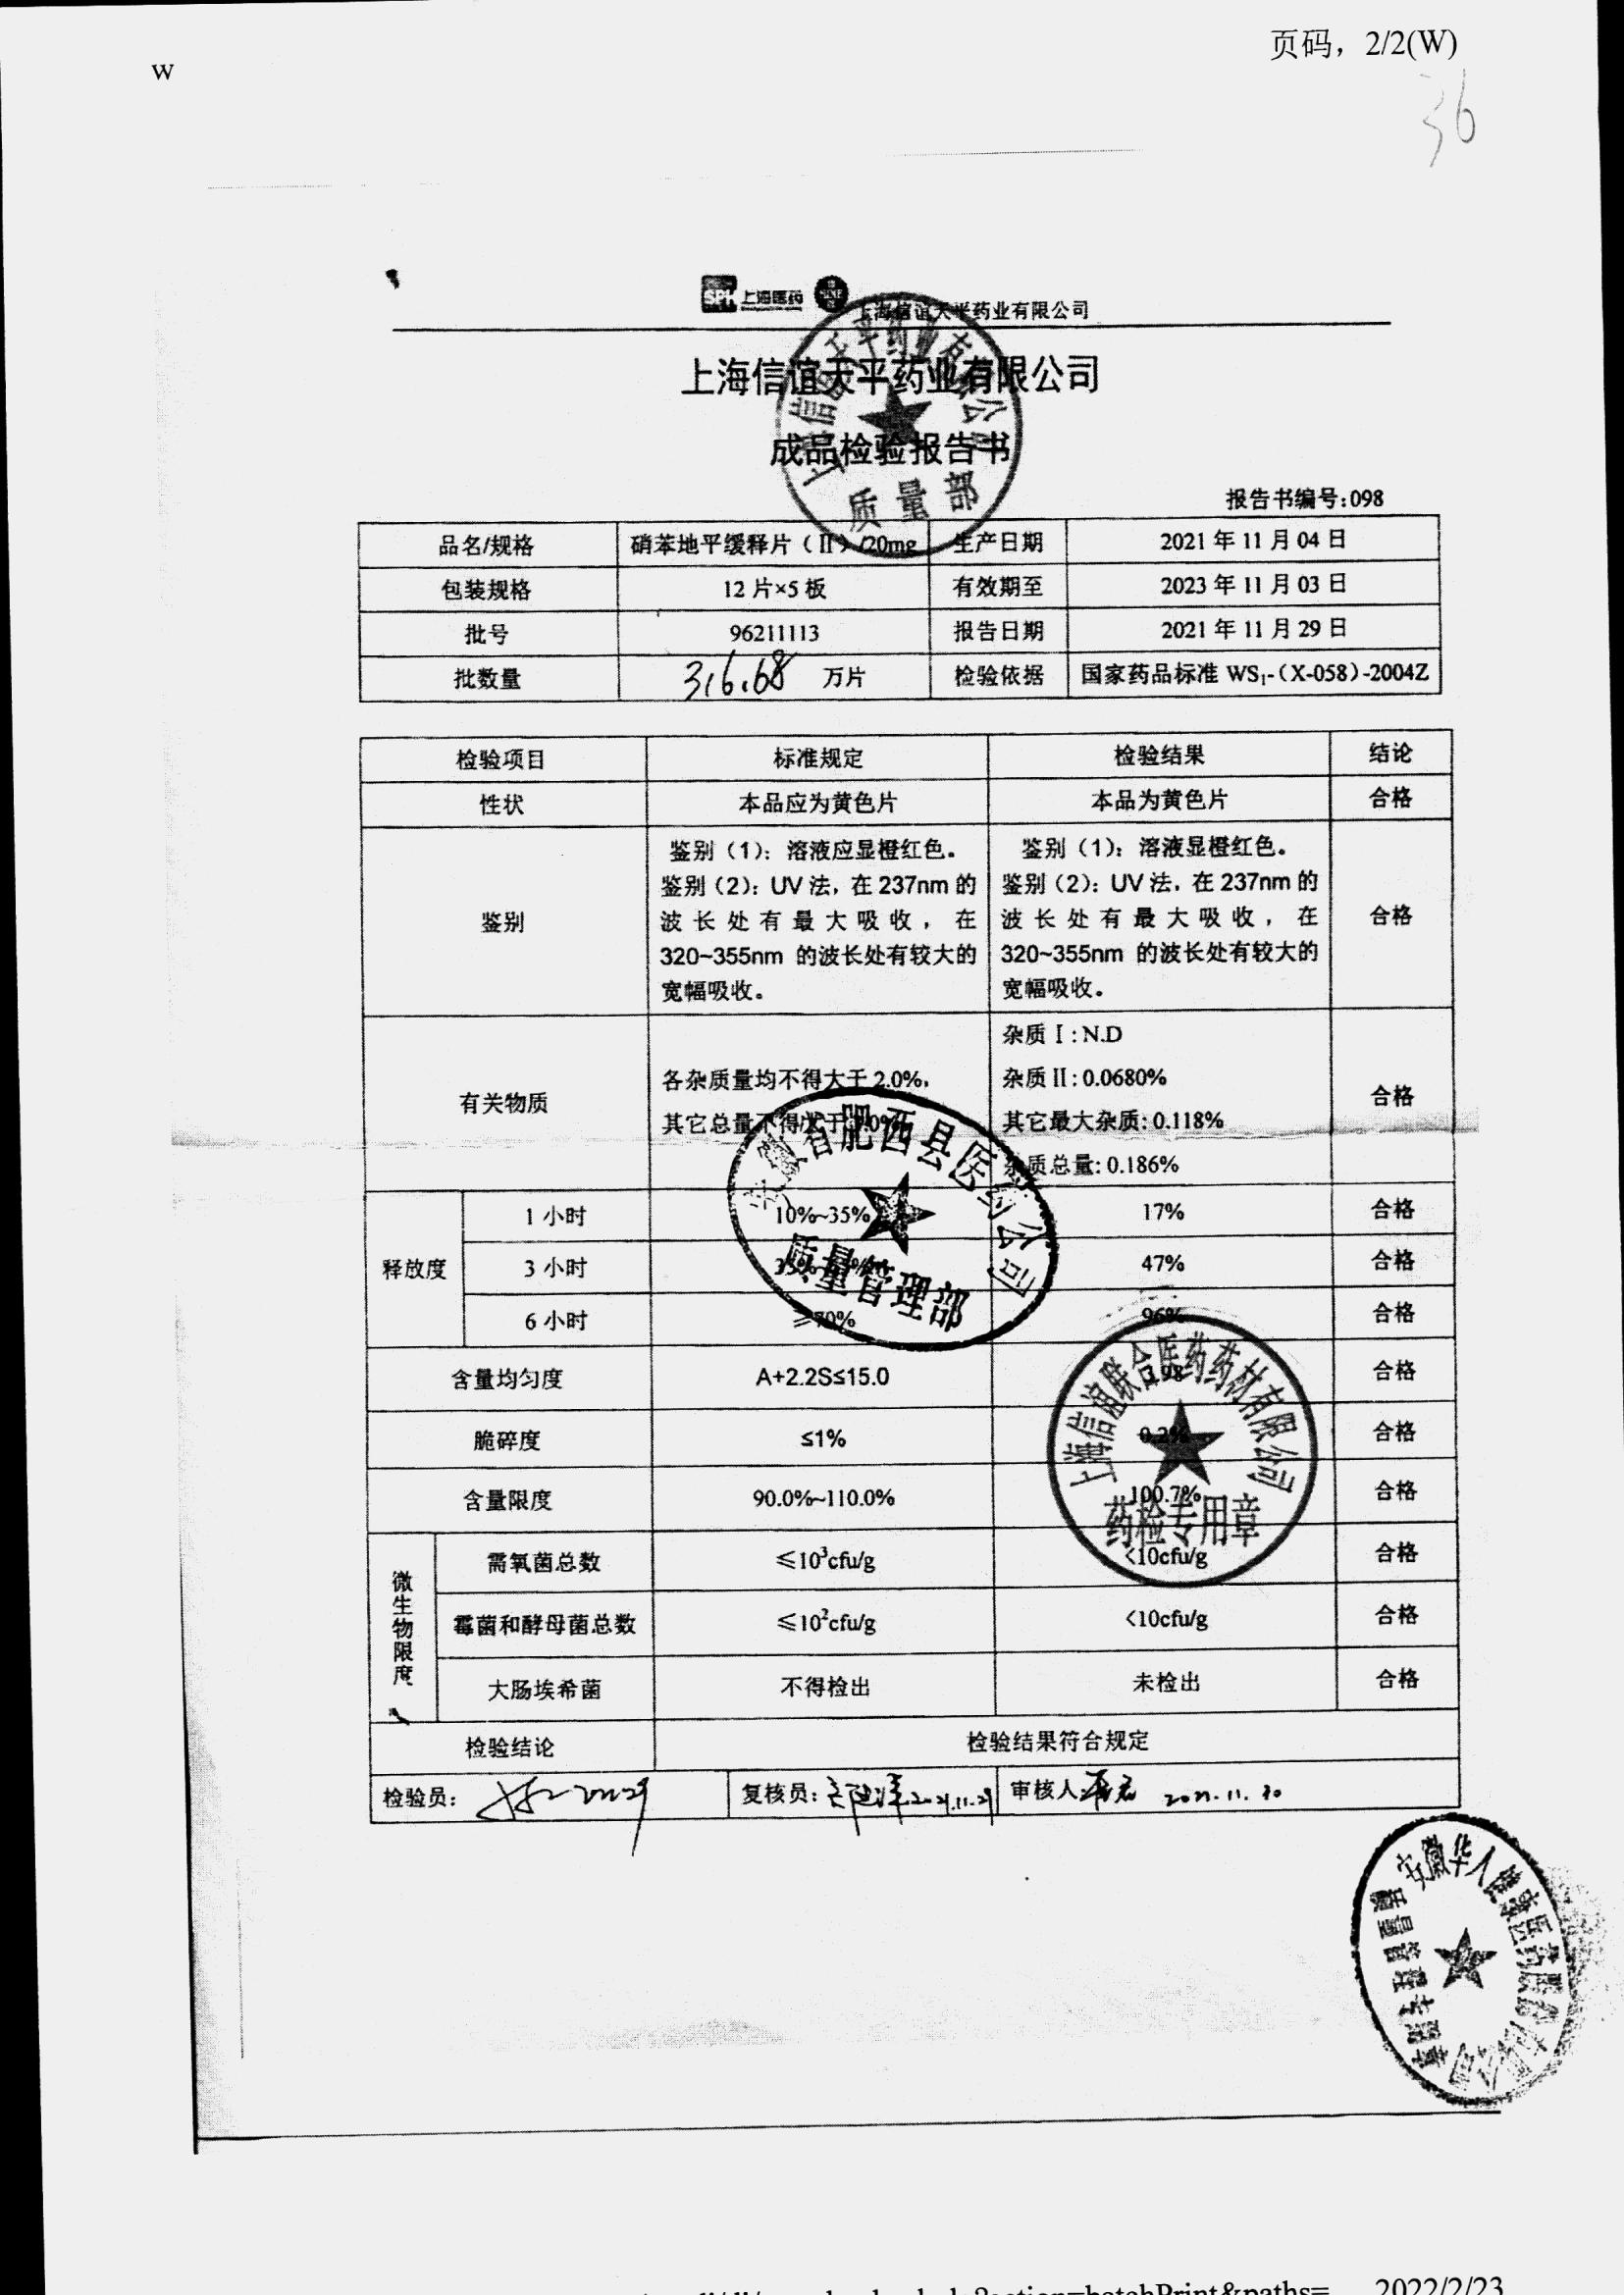 页码，2/2(W)
w
36
SPH 上海医药 上海信谊天平药业有限公司
上海信谊天平药业有限公司
成品检验报告书
质量部
报告书编号:098
品名/规格 硝苯地平缓释片（II）/20mg 生产日期 2021 年 11 月 04 日
包装规格 12 片×5 板 有效期至 2023 年 11 月 03 日
批号 96211113 报告日期 2021 年 11 月 29 日
批数量 316.68 万片 检验依据 国家药品标准 WS₁-（X-058）-2004Z
检验项目 标准规定 检验结果 结论
性状 本品应为黄色片 本品为黄色片 合格
鉴别 合格
鉴别（1）：溶液应显橙红色。
鉴别（2）：UV 法，在 237nm 的
波长处有最大吸收，在
320~355nm 的波长处有较大的
宽幅吸收。
鉴别（1）：溶液显橙红色。
鉴别（2）：UV 法，在 237nm 的
波长处有最大吸收，在
320~355nm 的波长处有较大的
宽幅吸收。
有关物质 合格
各杂质量均不得大于 2.0%，
其它总量不得大于
杂质 I : N.D
杂质 II : 0.0680%
其它最大杂质: 0.118%
杂质总量: 0.186%
释放度
1 小时 10%~35% 17% 合格
3 小时 47% 合格
6 小时 ≥70% 96% 合格
含量均匀度 A+2.2S≤15.0 合格
脆碎度 ≤1% 合格
含量限度 90.0%~110.0% 100.7% 合格
微生物限度
需氧菌总数 ≤10³cfu/g <10cfu/g 合格
霉菌和酵母菌总数 ≤10²cfu/g <10cfu/g 合格
大肠埃希菌 不得检出 未检出 合格
检验结论 检验结果符合规定
检验员： 复核员： 2021.11.29 审核人 2021.11.30
安徽省肥西县医药公司
质量管理部
上海信谊联合医药药材有限公司
药检专用章
安徽华人健康医药股份有限公司
质量管理专用章
2022/2/23